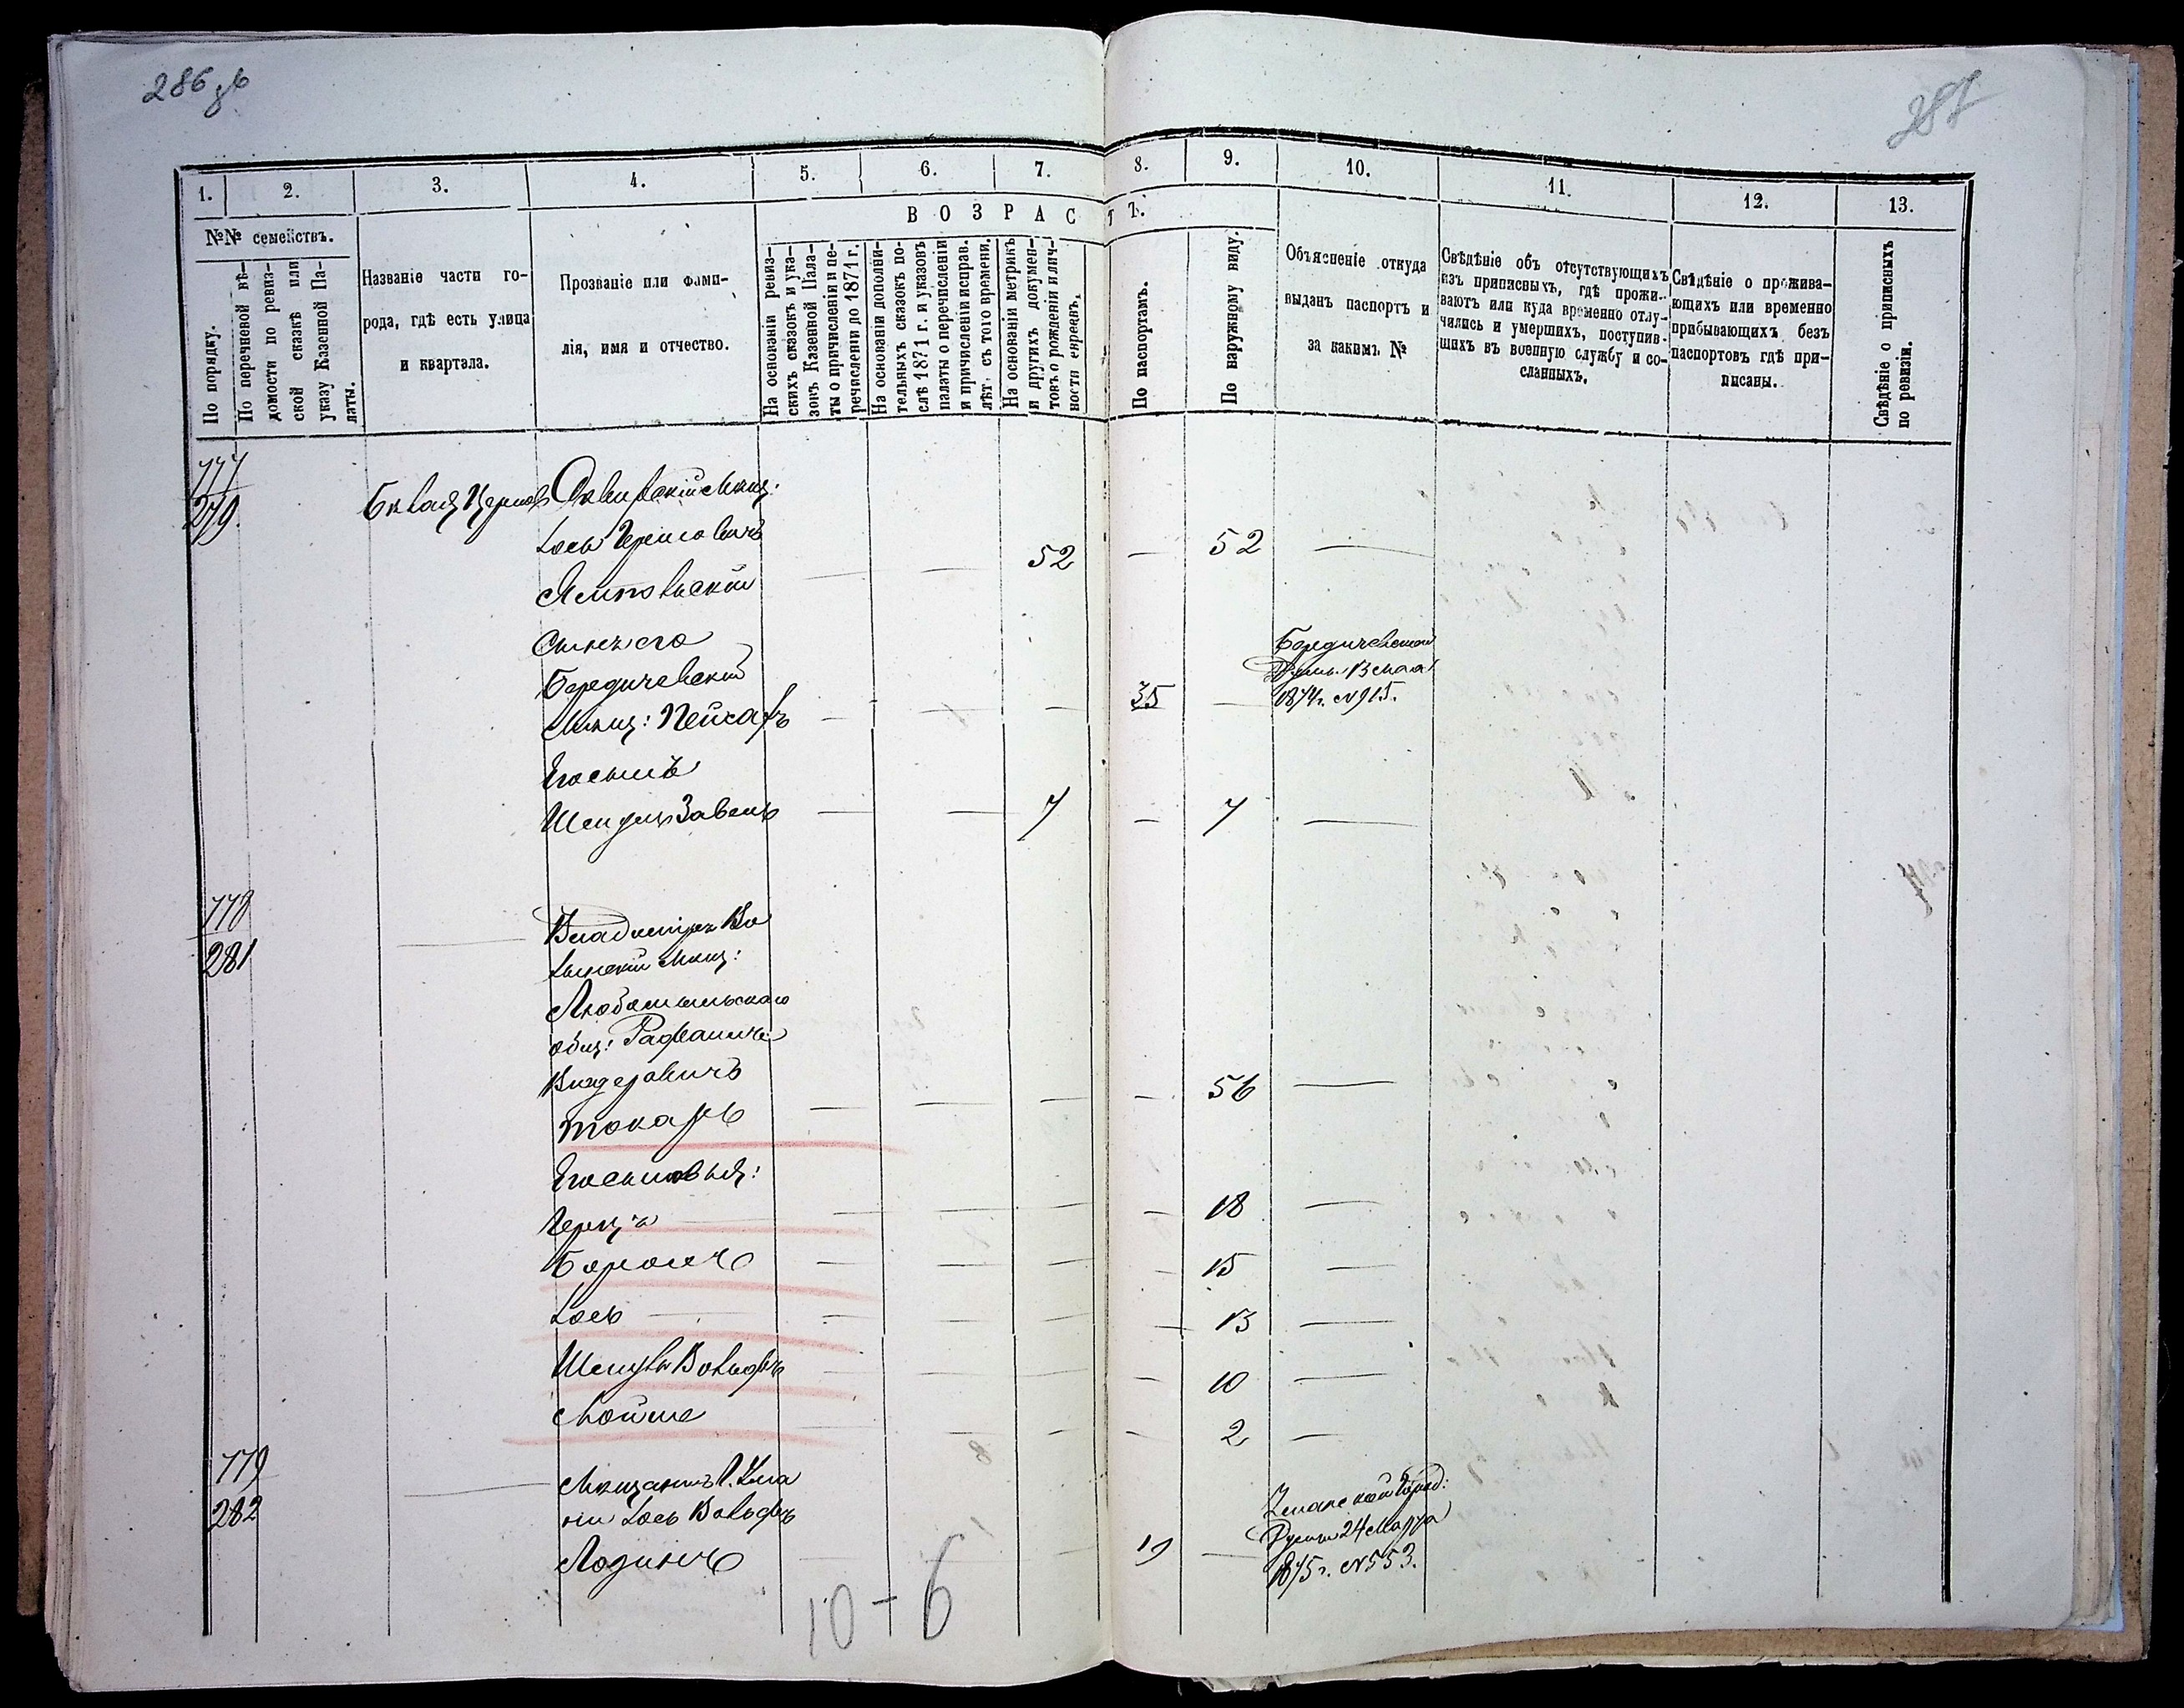 286 об
287
1.
2.
3.
4.
5.
6.
7.
8.
9.
10.
11.
12.
13.
№№ семействъ.
ВОЗРАСТЪ.
По порядку.
По перечневой вѣ-
домости по ревиз-
ской сказкѣ или
указу Казенной Па-
латы.
Названіе части го-
рода, гдѣ есть улица
и квартала.
Прозваніе или фами-
лія, имя и отчество.
На основаніи ревиз-
скихъ сказокъ и ука-
зовъ Казенной Пала-
ты о причисленіи и пе-
речисленіи до 1871 г.
На основаніи дополни-
тельныхъ сказокъ по-
слѣ 1871 г. и указовъ
палаты о перечисленіи
и причисленіи исправ.
лѣтъ съ того времени.
На основаніи метрикъ
и другихъ докумен-
товъ о рожденіи и лич-
ности евреевъ.
По паспортамъ.
По наружному виду.
Объясненіе откуда
выданъ паспортъ и
за какимъ №
Свѣдѣніе объ отсутствующихъ
изъ приписныхъ, гдѣ прожи-
ваютъ или куда временно отлу-
чились и умершихъ, поступив-
шихъ въ военную службу и со-
сланныхъ.
Свѣдѣніе о прожива-
ющихъ или временно
прибывающихъ безъ
паспортовъ гдѣ при-
писаны.
Свѣдѣніе о приписныхъ
по ревизіи.
777
279
Сквирскій Мѣщ:
Іось Гершовичъ
52 — 52 —
Сынъ его
Бердичевскій
Мѣщ: Пейсахъ
35
Бердичевской
Думы 13 Мая
1874 г. №915.
Его сынъ
7 — 7 —
778
281
Владиміръ Во
лынскій Мѣщ:
Любомльскаго
общ:
Токарь
56
Его сыновья:
Герцъ
18
Борохъ
15
Іось
13
Вольфъ
10
Мойше
2
779
282
Мѣщанинъ
Іось Вольфъ
19
Думы 24 Марта
1875 г. №553.
10-6